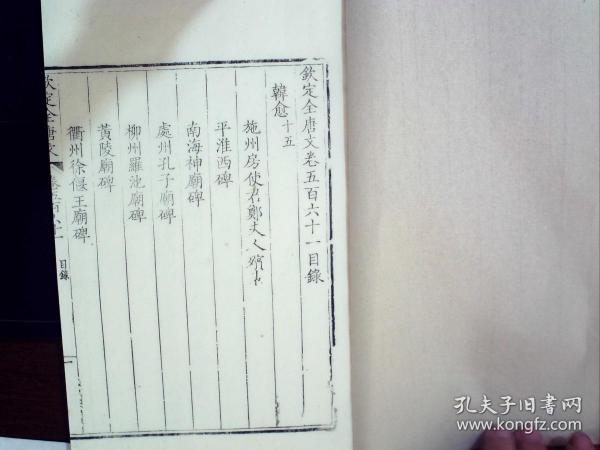 欽定全唐文卷五百六十一目錄
韓愈十五
施州房使君鄭夫人殯表
平淮西碑
南海神廟碑
處州孔子廟碑
柳州羅池廟碑
黃陵廟碑
衢州徐偃王廟碑
欽定全唐文
目錄
孔夫子旧書网
www.kongfz.com